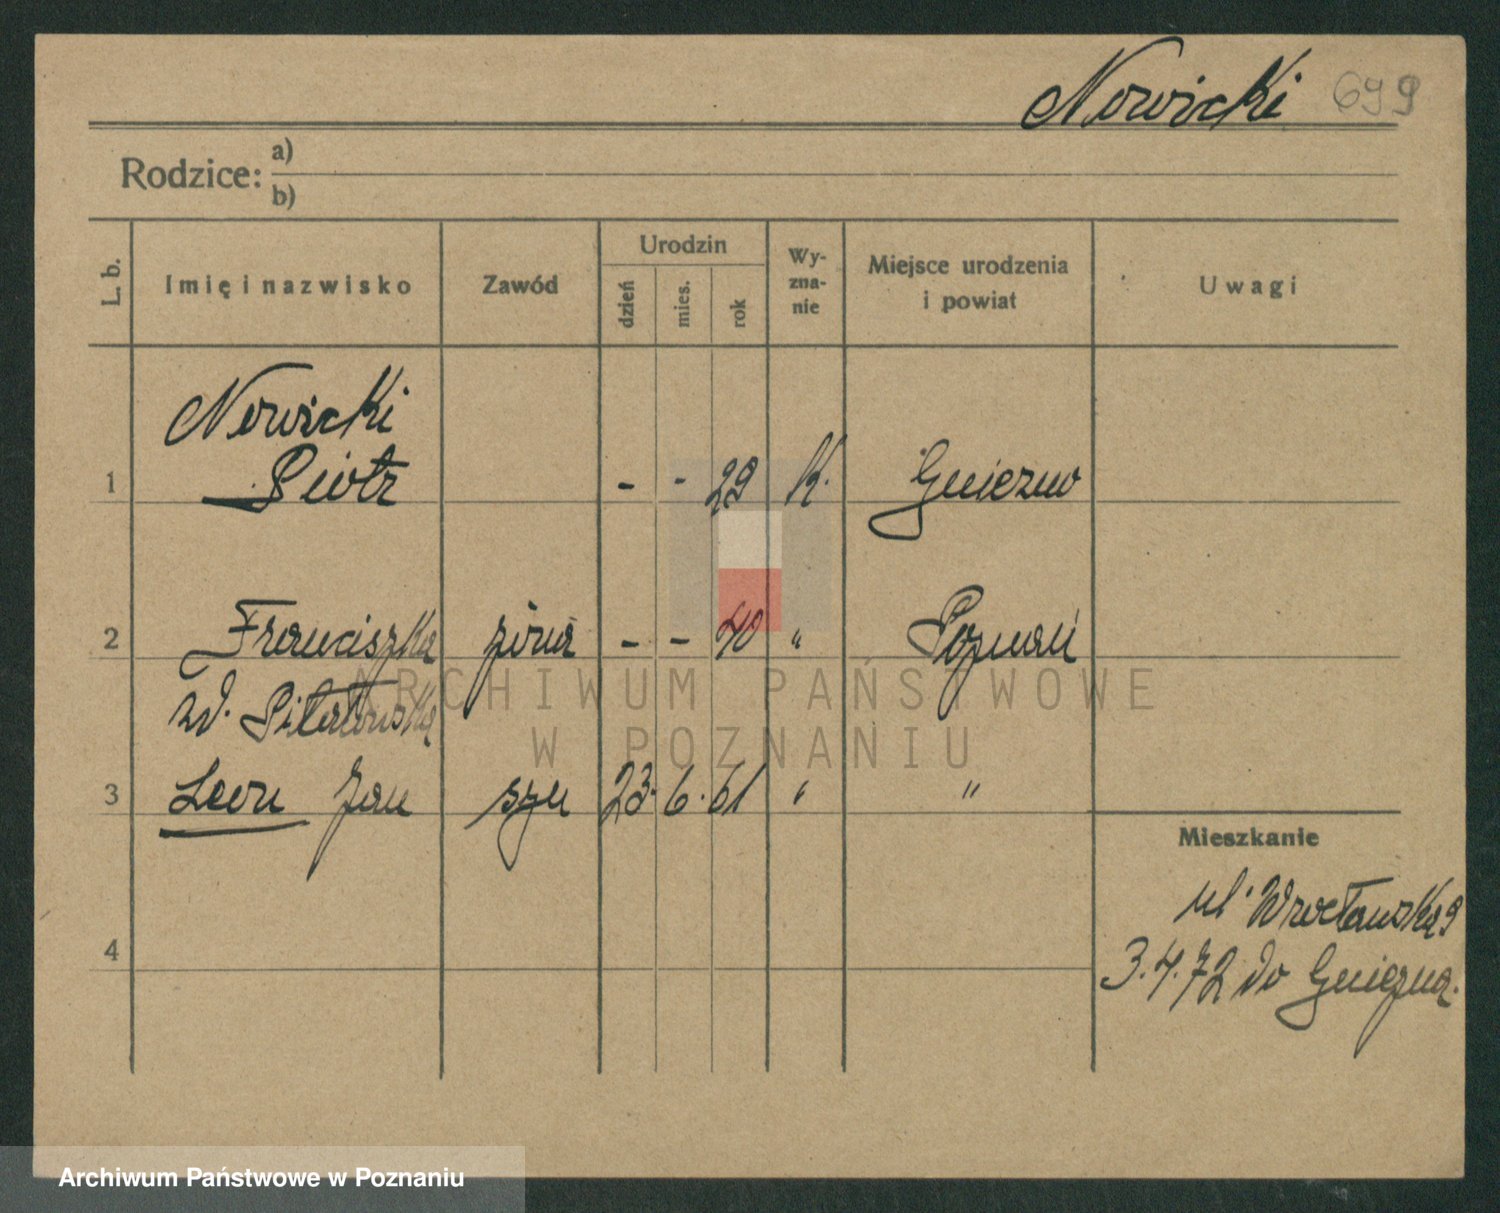 Nowicki 699
Rodzice: a)
b)
L. b.
Imię i nazwisko
Zawód
Urodzin
dzień
mies.
rok
Wy-
zna-
nie
Miejsce urodzenia
i powiat
Uwagi
Nowicki
1 Piotr - - 29 K. Gniezno
2 Franciszka żona - - 40 " Poznań
zd.
3 Leon Jan syn 23. 6. 61 " "
Mieszkanie
ul. Wrocławska 9
4
3.4.72 do Gniezna.
ARCHIWUM PAŃSTWOWE
W POZNANIU
Archiwum Państwowe w Poznaniu